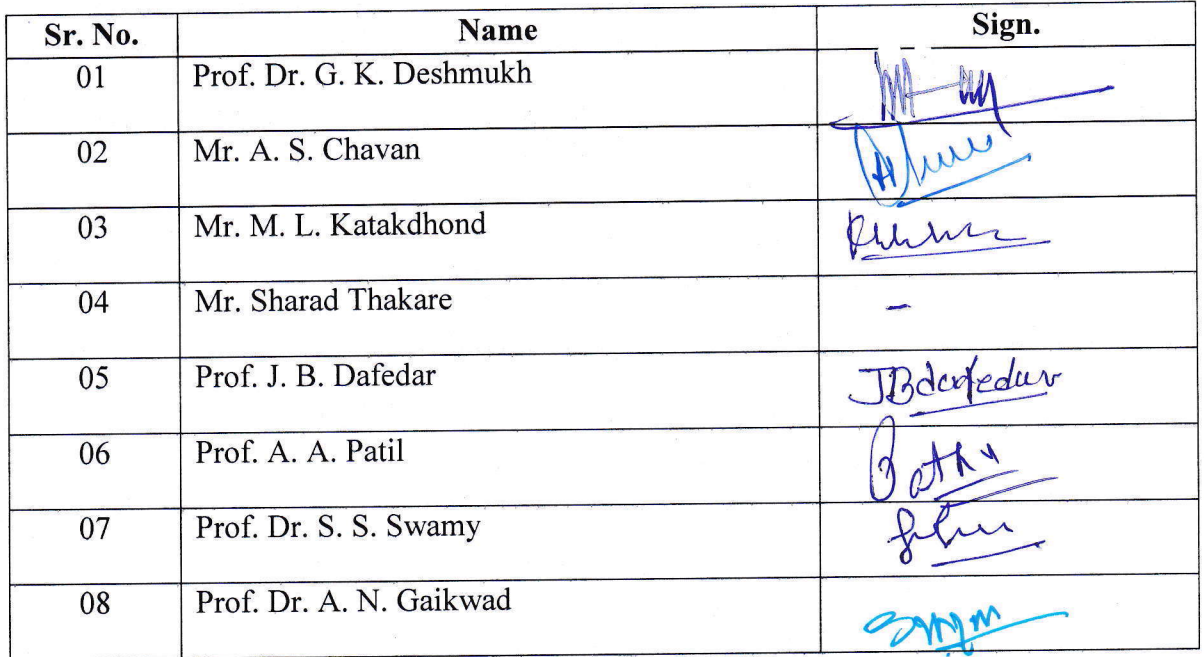 Sr. No. Name Sign.
01 Prof. Dr. G. K. Deshmukh
02 Mr. A. S. Chavan
03 Mr. M. L. Katakdhond
04 Mr. Sharad Thakare -
05 Prof. J. B. Dafedar JBdafedar
06 Prof. A. A. Patil
07 Prof. Dr. S. S. Swamy
08 Prof. Dr. A. N. Gaikwad